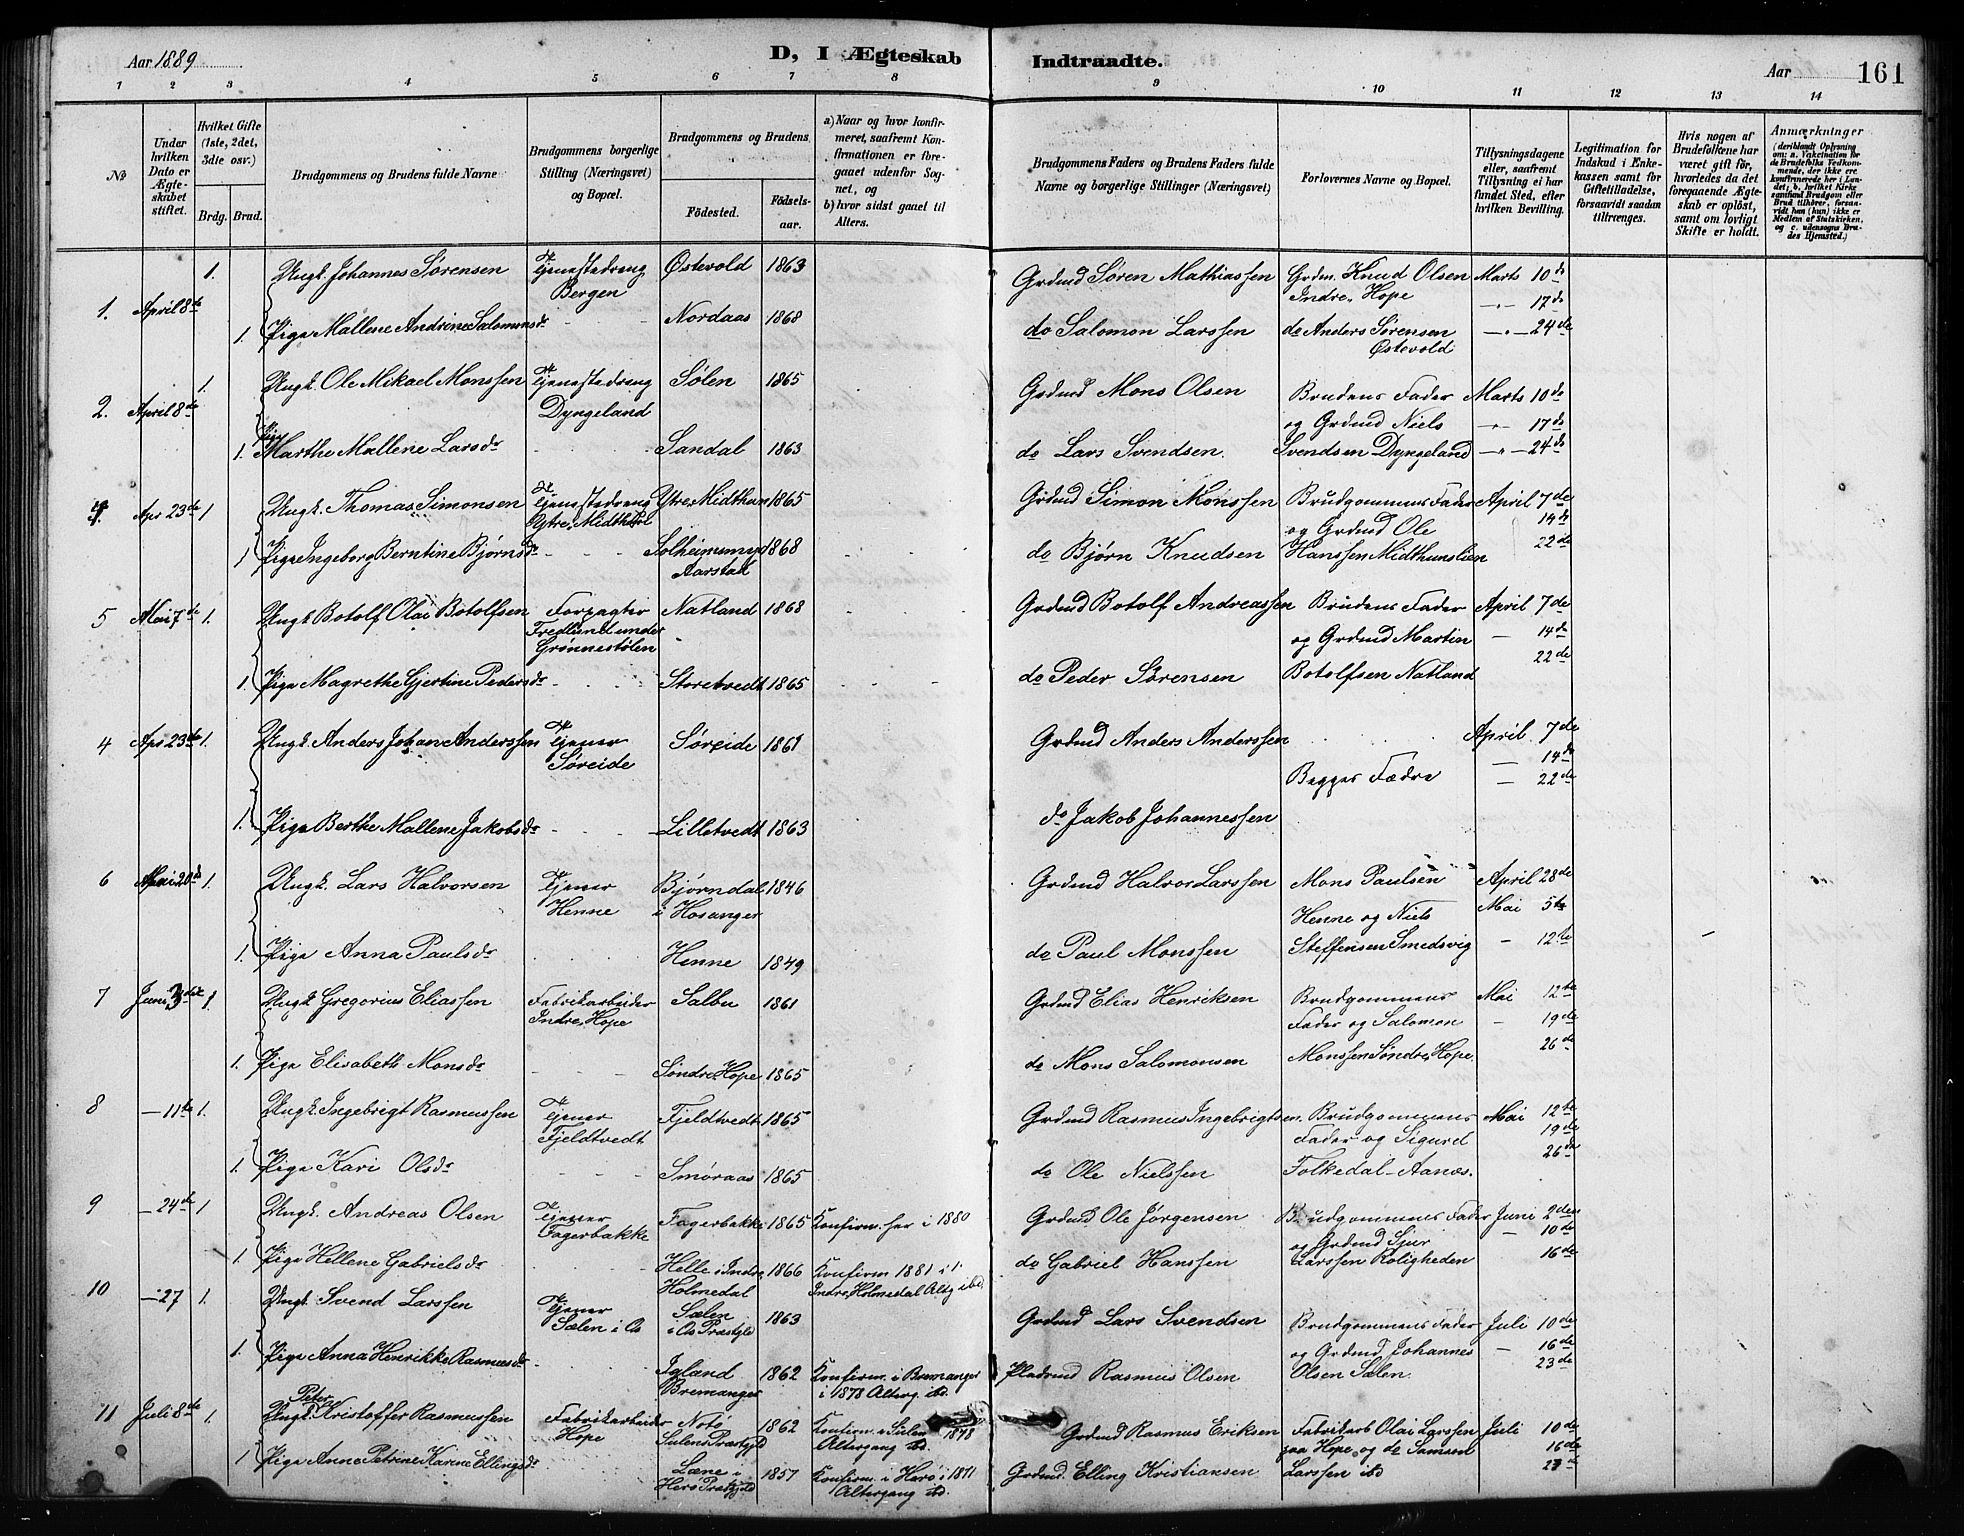 Aar 1889
D, I Ægteskab Indtraadte.
Aar 161
1 2 3 4 5 6 7 8 9 10 11 12 13 14
No
Under hvilken Dato er Ægteskabet stiftet.
Hvilket Gifte (1ste, 2det, 3die osv.)
Brdg. Brud.
Brudgommens og Brudens fulde Navne
Brudgommens borgerlige Stilling (Næringsvei) og Bopæl.
Brudgommens og Brudens
Fødested. Fødselsaar.
a) Naar og hvor konfirmeret, saafremt Konfirmationen er foregaaet udenfor Sognet, og
b) hvor sidst gaaet til Alters.
Brudgommens Faders og Brudens Faders fulde Navne og borgerlige Stillinger (Næringsvei)
Forlovernes Navne og Bopæl.
Tillysningsdagene eller, saafremt Tillysning ei har fundet Sted, efter hvilken Bevilling.
Legitimation for Indskud i Enkekassen samt for Giftetilladelse, forsaavidt saadan tiltrænges.
Hvis nogen af Brudefolkene har været gift før, hvorledes da det foregaaende Ægteskab er opløst, samt om lovligt Skifte er holdt.
Anmærkninger (deriblandt Oplysning om: a. Vakcination for de Brudefolks Vedkommende, der ikke ere konfirmerede her i Landet; b. hvilket Kirkesamfund Brudgom eller Brud tilhører, forsaavidt han (hun) ikke er Medlem af Statskirken, og c. udensogns Brudes Hjemsted.)
1. April 8de 1. Ungk. Johannes Sørensen Tjenestedreng Bergen Østevold 1863 Grdmd Søren Mathiassen Grdm. Knud Olsen Indre, Hope Marts 10de
17de
1. Pige Mallene Andrine Salomonsdr Nordaas 1868 do Salomon Larssen do Anders Sørensen Østevold 24de
2. April 8de 1. Ungk. Ole Mikael Monssen Tjenestedreng Dyngeland Sølen 1865 Grdmd Mons Olsen Brudens Fader Marts 10de
og Grdmd Niels 17de
1. Pige Marthe Mallene Larsdr Sandal 1863 do Lars Svendsen. Svendsen Dyngeland 24de
Apr 23de 1 Ungk. Thomas Simonsen Tjenestedreng Ytre, Midthun Ytre, Midthun 1865 Grdmd Simon Monssen Brudgommens Fader April 7de
og Grdmd Ole 14de
1 Pige Ingeborg Berntine Bjørnsdr Solheimsmyr Aarstad 1868 do Bjørn Knudsen Hanssen Midthunslien 22de
5 Mai 7de 1. Ungk Botolf Olai Botolfsen Forpagter Fredlund under Grønnestølen Natland 1868 Grdmd Botolf Andreassen Brudens Fader April 7de
og Grdmd Martin 14de
1. Pige Magrethe Gjertine Pedersdr Storetvedt 1865 do Peder Sørensen Botolfsen Natland 22de
4 Apr 23de 1. Ungk. Anders Johan Anderssen Tjener Søreide Søreide 1861 Grdmd Anders Anderssen April 7de
Begges Fædre 14de
22de
1. Pige Berthe Mallene Jakobsdr Lilletvedt 1863 do Jakob Johannessen
6 Mai 20de 1. Ungk. Lars Halvorsen Tjener Henne Bjørndal i Hosanger 1846 Grdmd Halvor Larssen Mons Paulsen April 28de
Henne og Niels Mai 5te
1. Pige Anna Paulsdr Henne 1849 do Paul Monssen Steffensen Smedsvig 12te
7 Juni 3die 1 Ungk Gregorius Eliassen Fabrikarbeider Indre, Hope Salbu 1861 Grdmd Elias Henriksen Brudgommens Mai 12te
Fader og Salomon 19de
1. Pige Elisabeth Monsdr Søndre, Hope 1865 do Mons Salomonsen Monssen Søndre, Hope. 26de
8 11te 1. Ungk. Ingebrigt Rasmussen Tjener Fjeldtvedt Fjeldtvedt 1865 Grdmd Rasmus Ingebrigtsen. Brudgommens Mai 12te
Fader og Sigurd 19de
1. Pige Kari Olsdr Smøraas 1865 do Ole Nielssen Folkedal - Aanæs. 26de
9 24de 1 Ungk. Andreas Olsen Tjener Fagerbakke Fagerbakke 1865 Konfirm. her i 1880 Grdmd Ole Jørgensen Brudgommens Fader Juni 2den
og Grdmd Sjur 10de
1. Pige Hellene Gabrielsdr Helle i Indre, Holmedal 1866 Konfirm 1881 i Indre, Holmedal Altg ibd. do Gabriel Hanssen Larssen Roligheden 16de
10 27 1. Ungk. Svend Larssen Tjener Sælen i Os Sælen i Os Præstgld 1863 Grdmd Lars Svendsen Brudgommens Fader Juli 10de
og Grdmd Johannes 16de
1. Pige Anna Henrikke Rasmusdr Igland Bremanger 1862 Konfirm. i Bremanger i 1878 Alterg. ibd. Pladsmd Rasmus Olsen Olsen Sælen. 23de
11 Juli 8de 1. Ungk. Peter Kristoffer Rasmussen Fabrikarbeider Hope Notø Sulens Præstgjld 1862 Konfirm. i Sulen 1878 Altergang ibd. Grdmd Rasmus Eriksen Fabrikarb Olai Larssen Juli 10de
paa Hope, og do Samsen 16de
1 Pige Anne Petrine Karine Ellingsdr Læne i Herø Præstgjeld 1857 Konfirm. i Herø i 1871 Altergang ibd. Grdmd. Elling Kristiansen Larssen ibd 23de